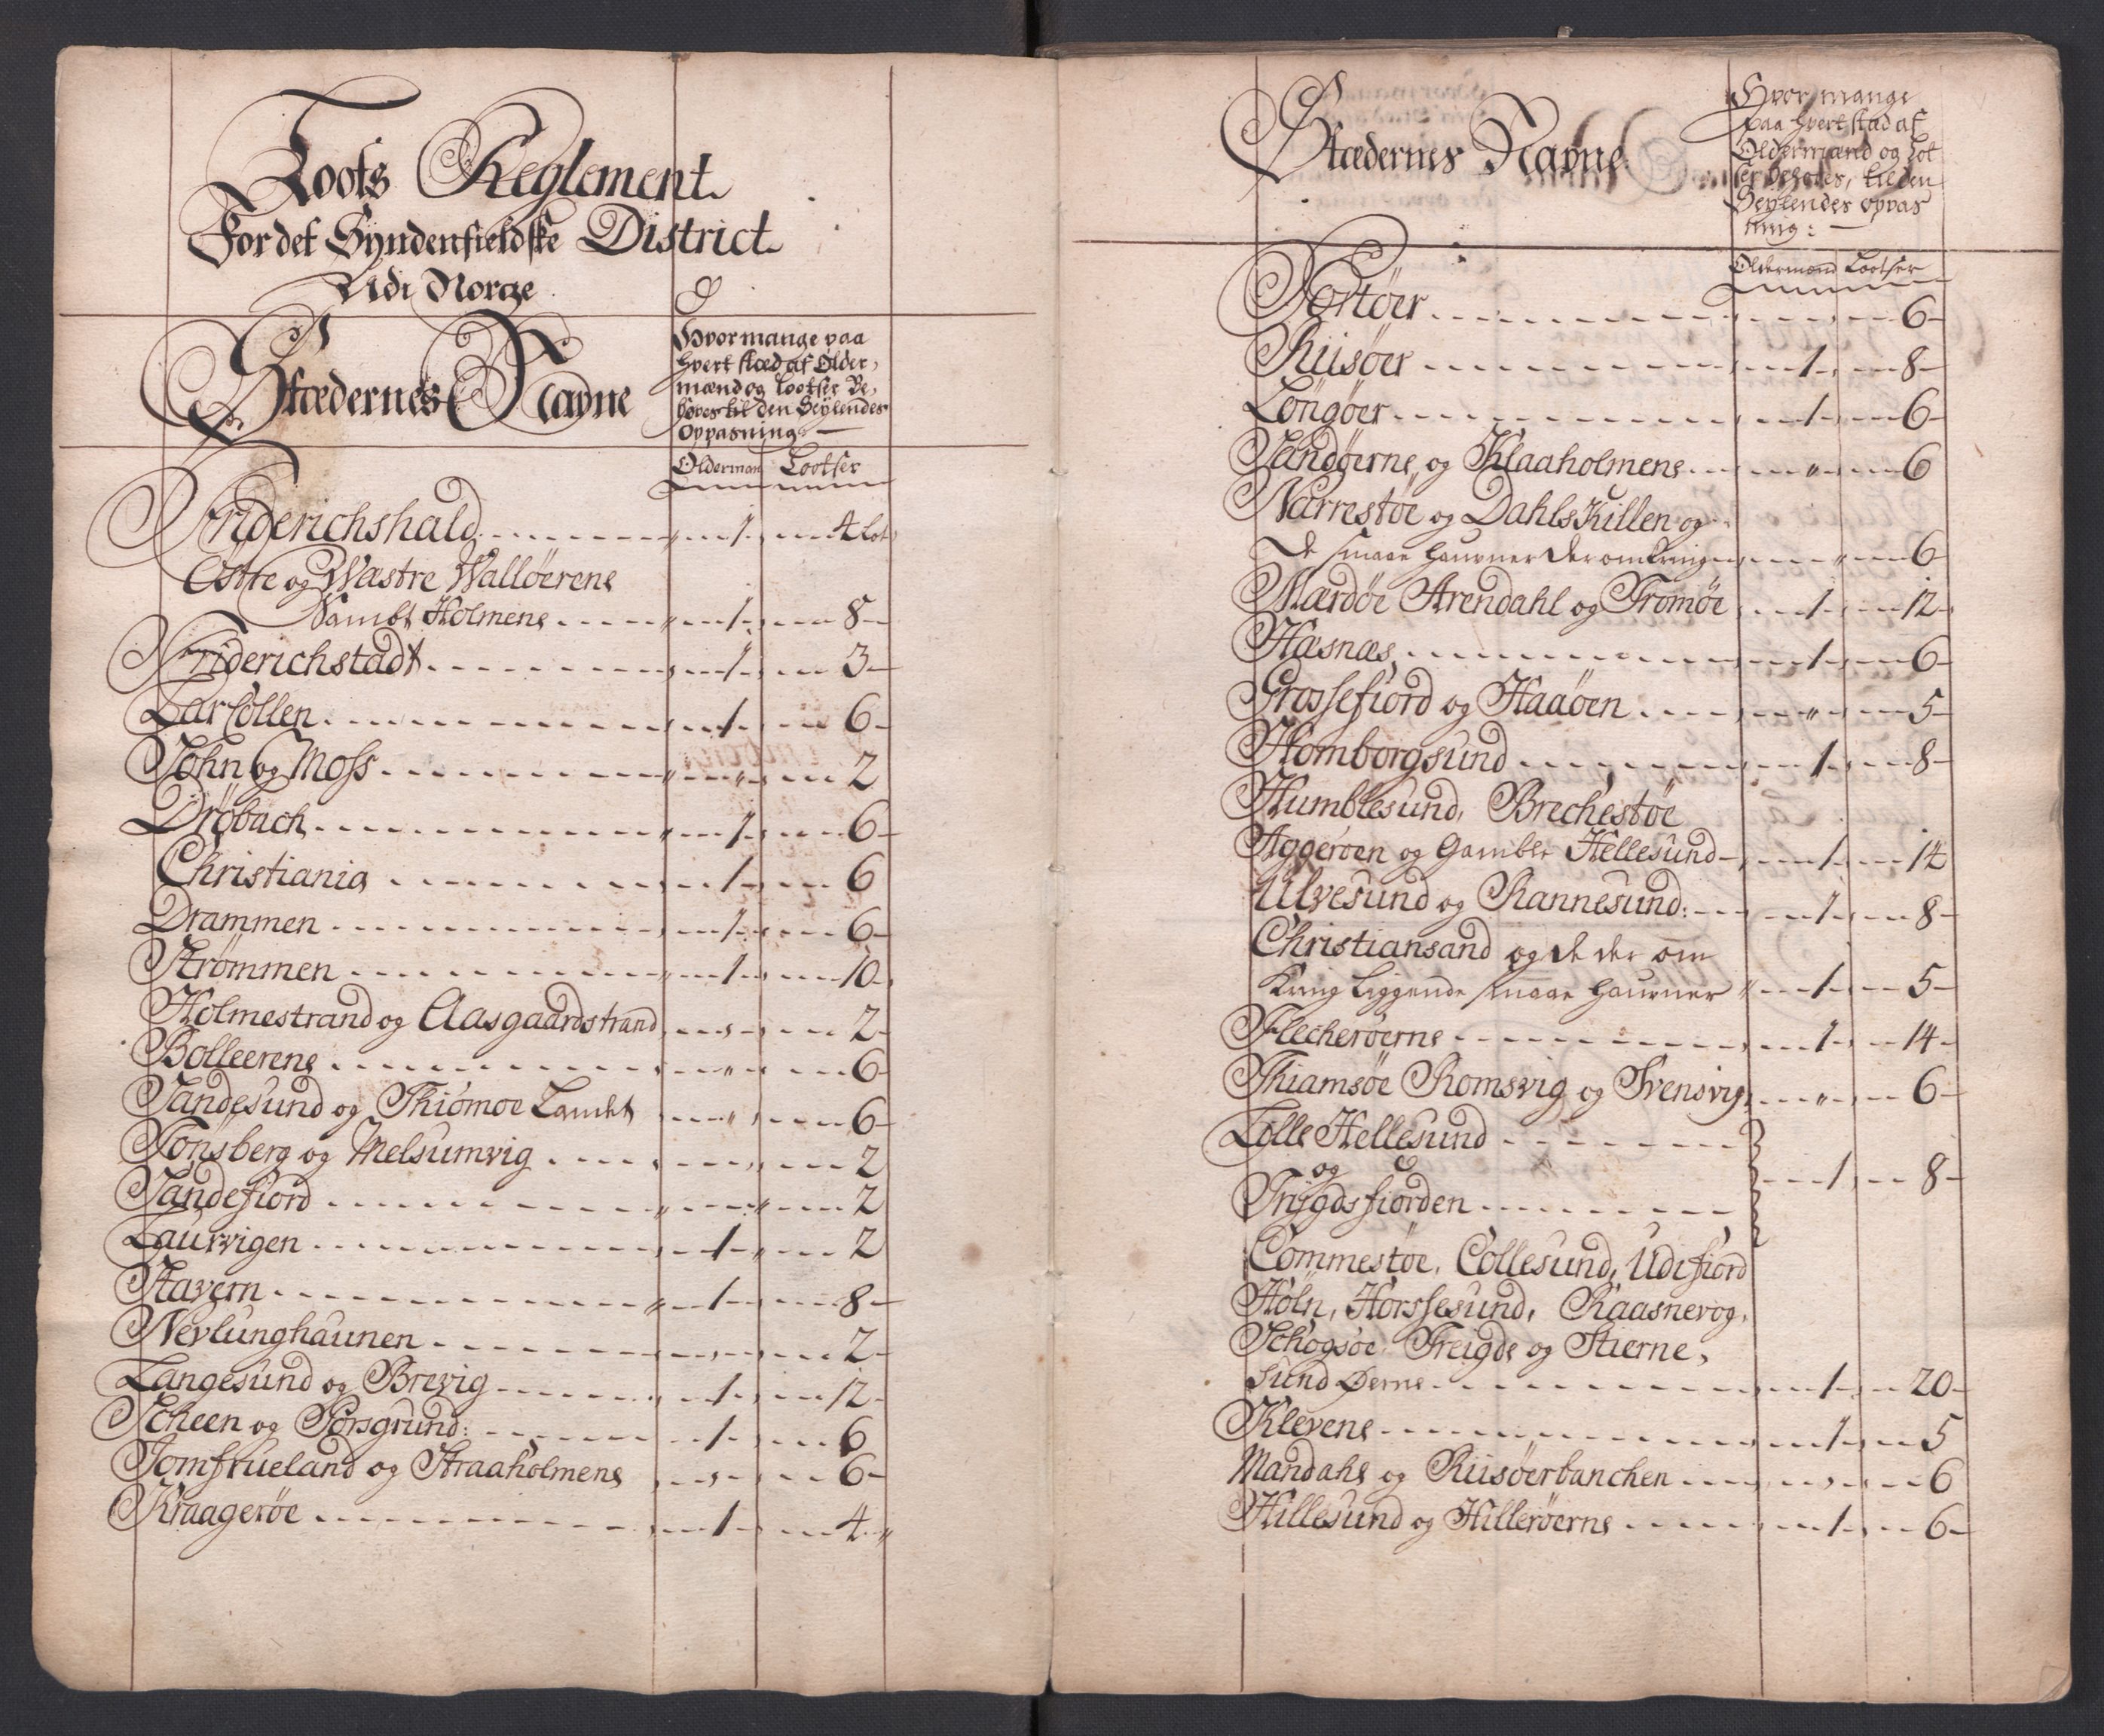 Loots Reglement
For det Syndenfieldske District
Udi Norge
Stædernes Navne
Hvor mange paa
hvert stæd af Older,
mænd og Lootser Be,
høves til den Seylendes
Oppasning
Olderman Lootser
Friderichshald " 1 4 Lots
Östre og Wæstre Walløerene
Sambt Holmene " 1 8
Friderichstadt 1 3
Larkollen 1 6
Sohn og Moss " " 2
Drøbach " 1 6
Christiania 1 6
Drammen 1 6
Strømmen " 1 10
Holmestrand og Aasgaardstrand 2
Bolleerene " 6
Sandesund og Thiömoe Landet " 6
Tonsberg og Melsumvig 2
Sandefiord " " 2
Laurvigen 1 " 2
Stavern " 1 8
Nevlunghaunen 2
Langesund og Brevig 1 12
Scheen og Porsgrund: 1 6
Jomfrueland og Straaholmene 6
Kraagerøe 1 4 "
Stædernes Navne
Hvor mange
paa hvert stad af
Oldermænd og Lot
ser behøves, til den
Seylendes oppas
ning:
Oldermænd Lootser
Portøer 6
Riisøer 1 8
Löngøer 1 6
Sandøerne og Klaaholmene " 6
Narrestøe og Dahls Killen og
De smaae Haufner der omkring " 6
Mærdøe Arendahl og Tromøe 1 12
Hasnæs 1 6
Grossefiord og Haaøen " 5
Homborgsund 1 8
Humblesund, Brechestøe
Aggerøen og Gamble Hellesund 1 14
Ulvesund og Rannesund: 1 8
Christiansand og de der om
Kring Liggende smaae Haufner " 1 5
Flecherøerne 1 14
Thiamsøe Romsvig og Svensvig " 6
Lille Hellesund
og 1 8
Trygdsfiorden
Commestøe, Collesund, Udi fiord
Höln, Horssesund, Raasnevog,
Schogsøe Treigde og Stierne,
Sund Øerne 1 20
Klevene 1 5
Mandahl og Riisøerbanchen 6
Hillesund og Hillerøerne 1 6